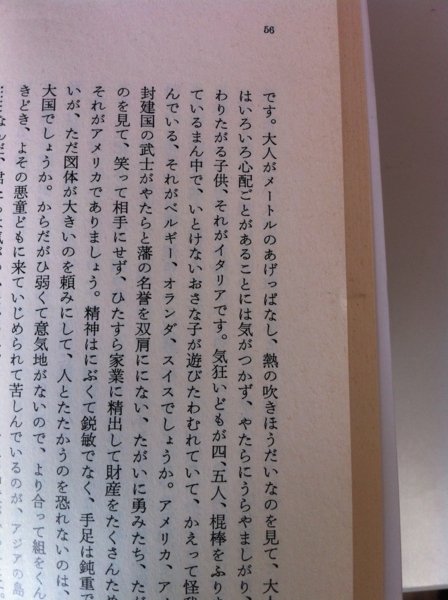 56
です。大人がメートルのあげっぱなし、熱の吹きほうだいなのを見て、大
はいろいろ心配ごとがあることには気がつかず、やたらにうらやましがり、
わりたがる子供、それがイタリアです。気狂いどもが四、五人、棍棒をふり
ているまん中で、いとけないおさな子が遊びたわむれていて、かえって怪
んでいる、それがベルギー、オランダ、スイスでしょうか。アメリカ、ア
封建国の武士がやたらと藩の名誉を双肩ににない、たがいに勇みたち、た
のを見て、笑って相手にせず、ひたすら家業に精出して財産をたくさんため
それがアメリカでありましょう。精神はにぶくて鋭敏でなく、手足は鈍重で
いが、ただ図体が大きいのを頼みにして、人とたたかうのを恐れないのは、
大国でしょうか。からだがひ弱くて意気地がないので、より合って組をくん
きどき、よその悪童どもに来ていじめられて苦しんでいるのが、アジアの島